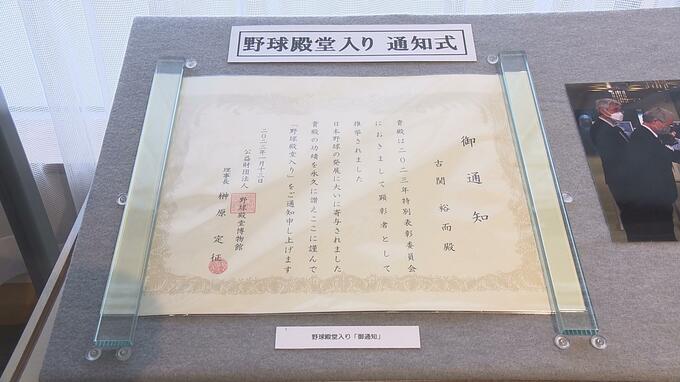 野球殿堂入り 通知式
御通知
古関 裕而殿
貴殿は二〇二三年特別表彰委員会
におきまして顕彰者として
推挙されました
日本野球の発展に大いに寄与されました
貴殿の功績を永久に讃えここに謹んで
「野球殿堂入り」をご通知申し上げます
二〇二三年一月十三日
公益財団法人
野球殿堂博物館
理事長 榊原 定征
野球殿堂入り「御通知」